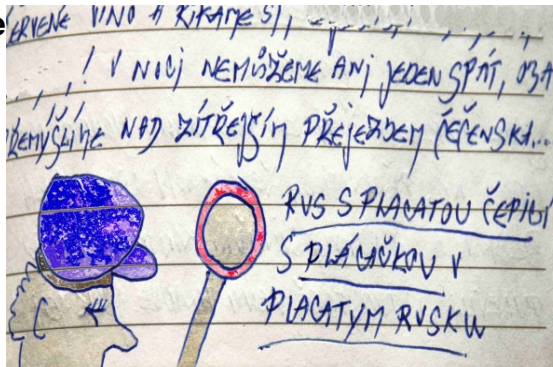 ERVENÉ VÍNO A ŘÍKÁME SI,
! V NOCI NEMŮŽEME ANI JEDEN SPÁT, OBA
ŘEMÝŠLÍME NAD ZÍTŘEJŠÍM PŘEJEZDEM ČEČENSKA...
RUS S PLACATOU ČEPICÍ
S PLÁCAČKOU V
PLACATYM RUSKU